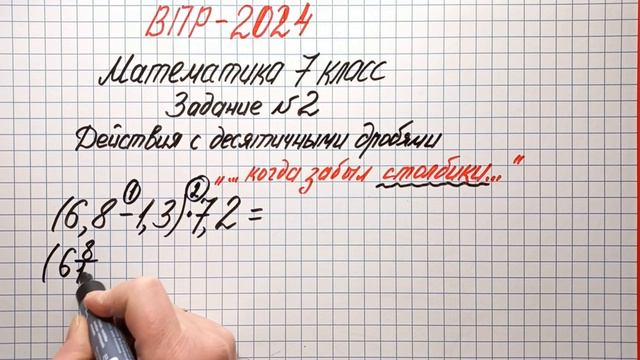 ВПР-2024
Математика 7 класс
Задание №2
Действия с десятичными дробями
„... когда забыл столбики..."
1 2
(6,8-1,3)·7,2=
(6 8/1